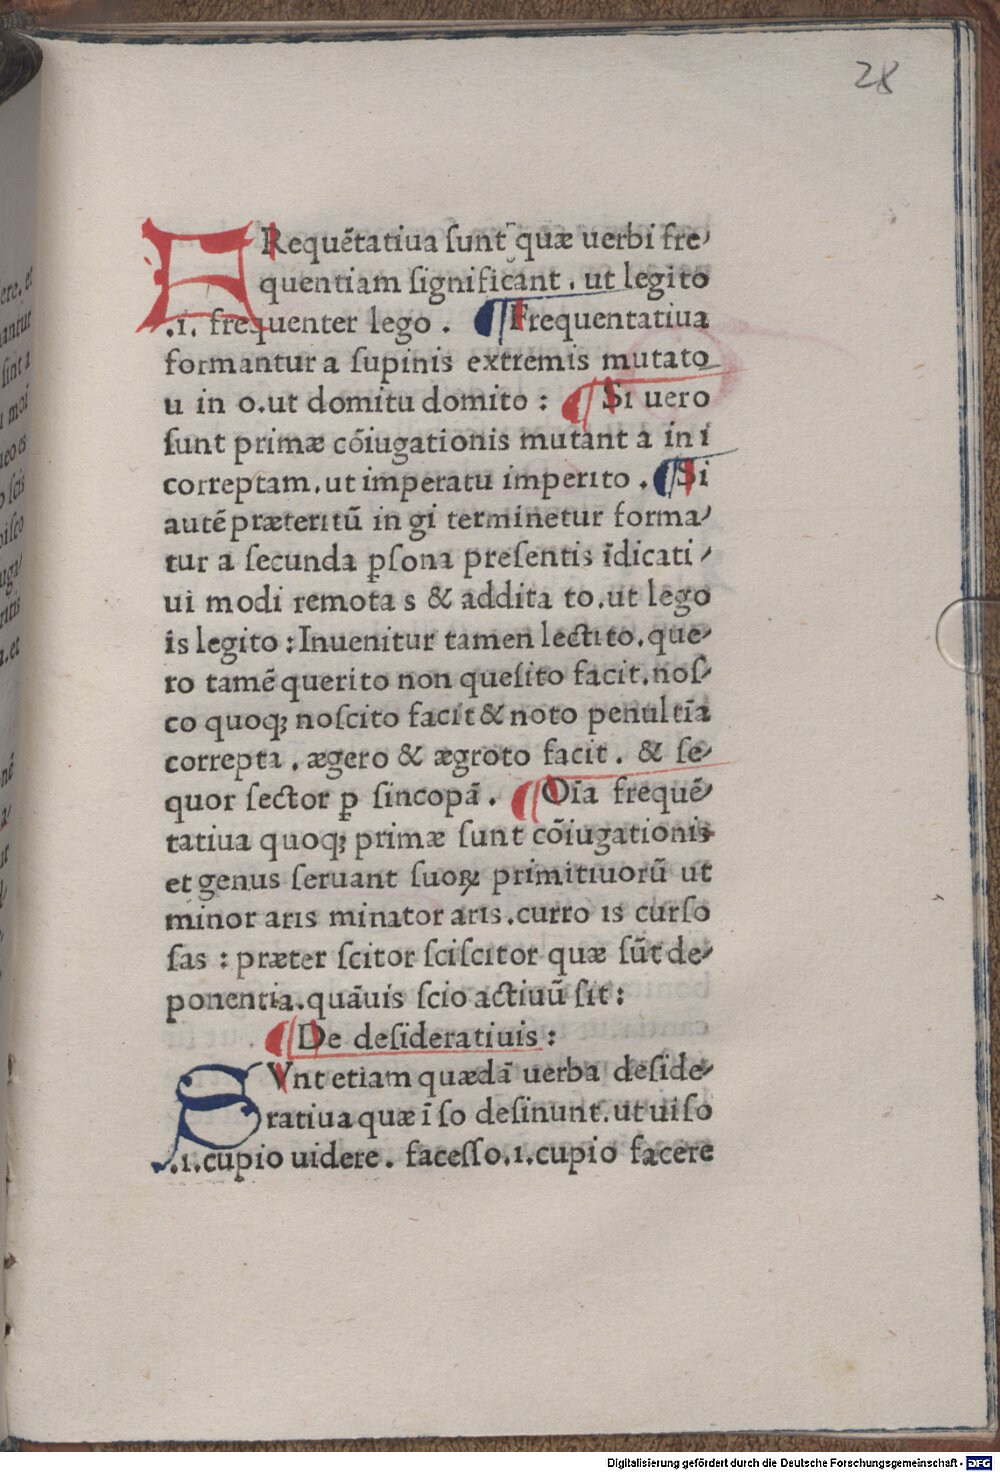 28
FRequẽtatiua ſunt quæ uerbi fre⸗
quentiam significant . ut legito
.i. frequenter lego . ¶ Frequentatiua
formantur a ſupinis extremis mutato
u in o.ut domitu domito : ¶ Si uero
ſunt primæ cõiugationis mutant a in i
correptam.ut imperatu imperito . ¶ Si
autẽ præteritũ in gi terminetur forma⸗
tur a ſecunda ꝑſona preſentis ĩdicati⸗
ui modi remota s & addita to.ut lego
is legito : Inuenitur tamen lectito.que⸗
ro tamẽ querito non queſito facit.noſ⸗
co quoqꝫ noſcito facit & noto penultĩa
correpta . ægero & ægroto facit . & ſe⸗
quor ſector ꝑ ſincopã . ¶ Oĩa frequẽ⸗
tatiua quoqꝫ primæ ſunt cõiugationis
et genus ſeruant ſuoꝝ primitiuorũ ut
minor aris minator aris.curro is curſo
ſas : præter ſcitor ſciſcitor quæ ſũt de⸗
ponentia.quãuis ſcio actiuũ ſit :
¶ De deſideratiuis :
SVnt etiam quædã uerba deſide⸗
ratiua quæ ĩ ſo deſinunt.ut uiſo
.i.cupio uidere . faceſſo.i.cupio facere
Digitalisierung gefördert durch die Deutsche Forschungsgemeinschaft - DFG